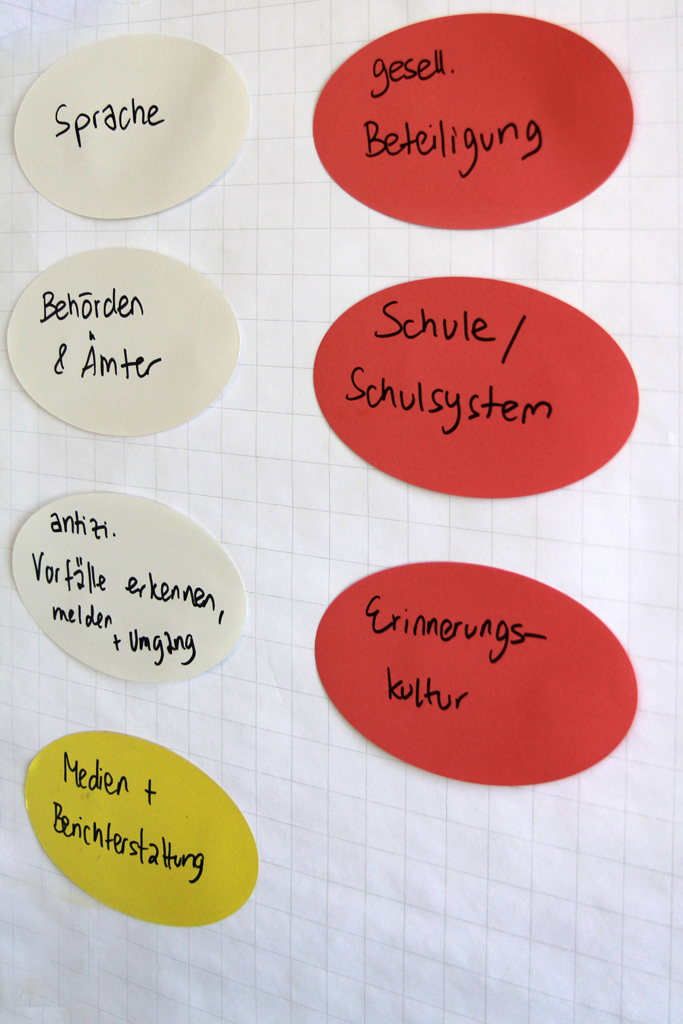 Sprache
Behörden
& Ämter
antizi.
Vorfälle erkennen,
melden
+ Umgang
Medien +
Berichterstattung
gesell.
Beteiligung
Schule/
Schulsystem
Erinnerungs-
kultur